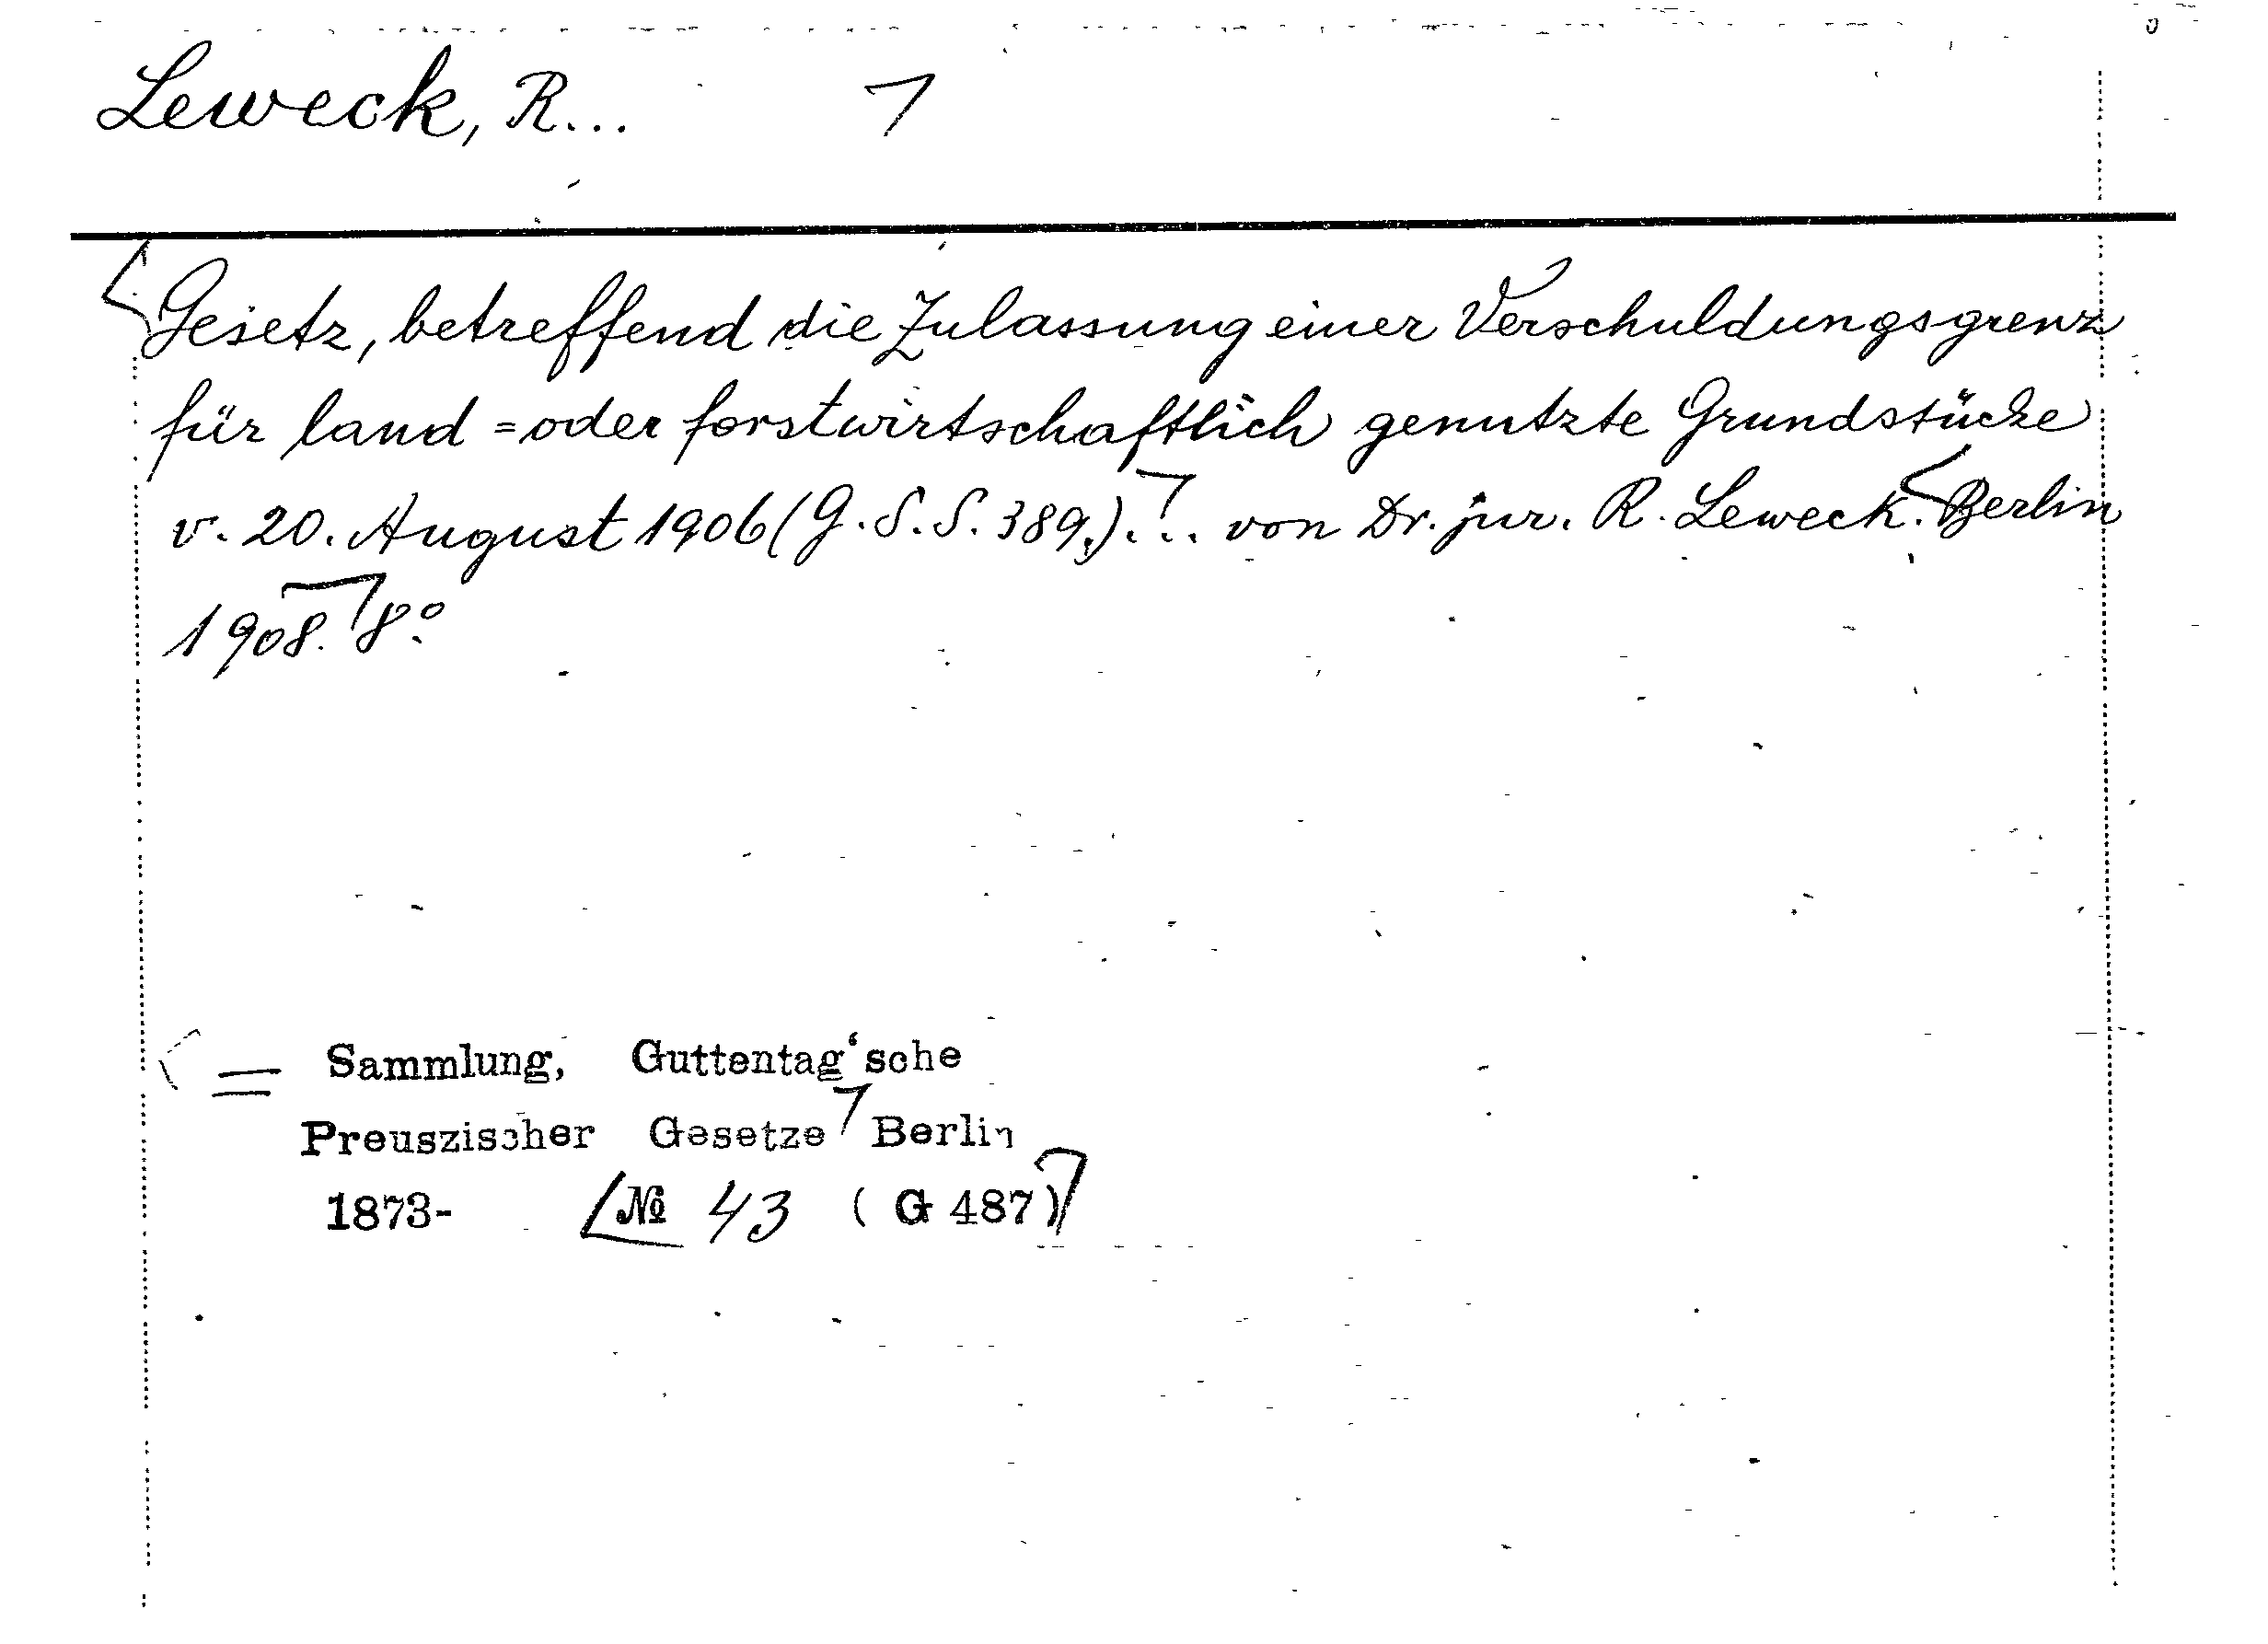 Leweck, R...
Gesetz, betreffend die Zulassung einer Verschuldungsgrenz
für land=oder forstwirtschaftlich genutzte Grundstücke
v. 20. August 1906 (G.S.S. 389.)... von Dr. jur. R. Leweck. Berlin
1908. 8°.
= Sammlung, Guttentag'sche
Preuszischer Gesetze Berlin
1873- № 43 (G 487)